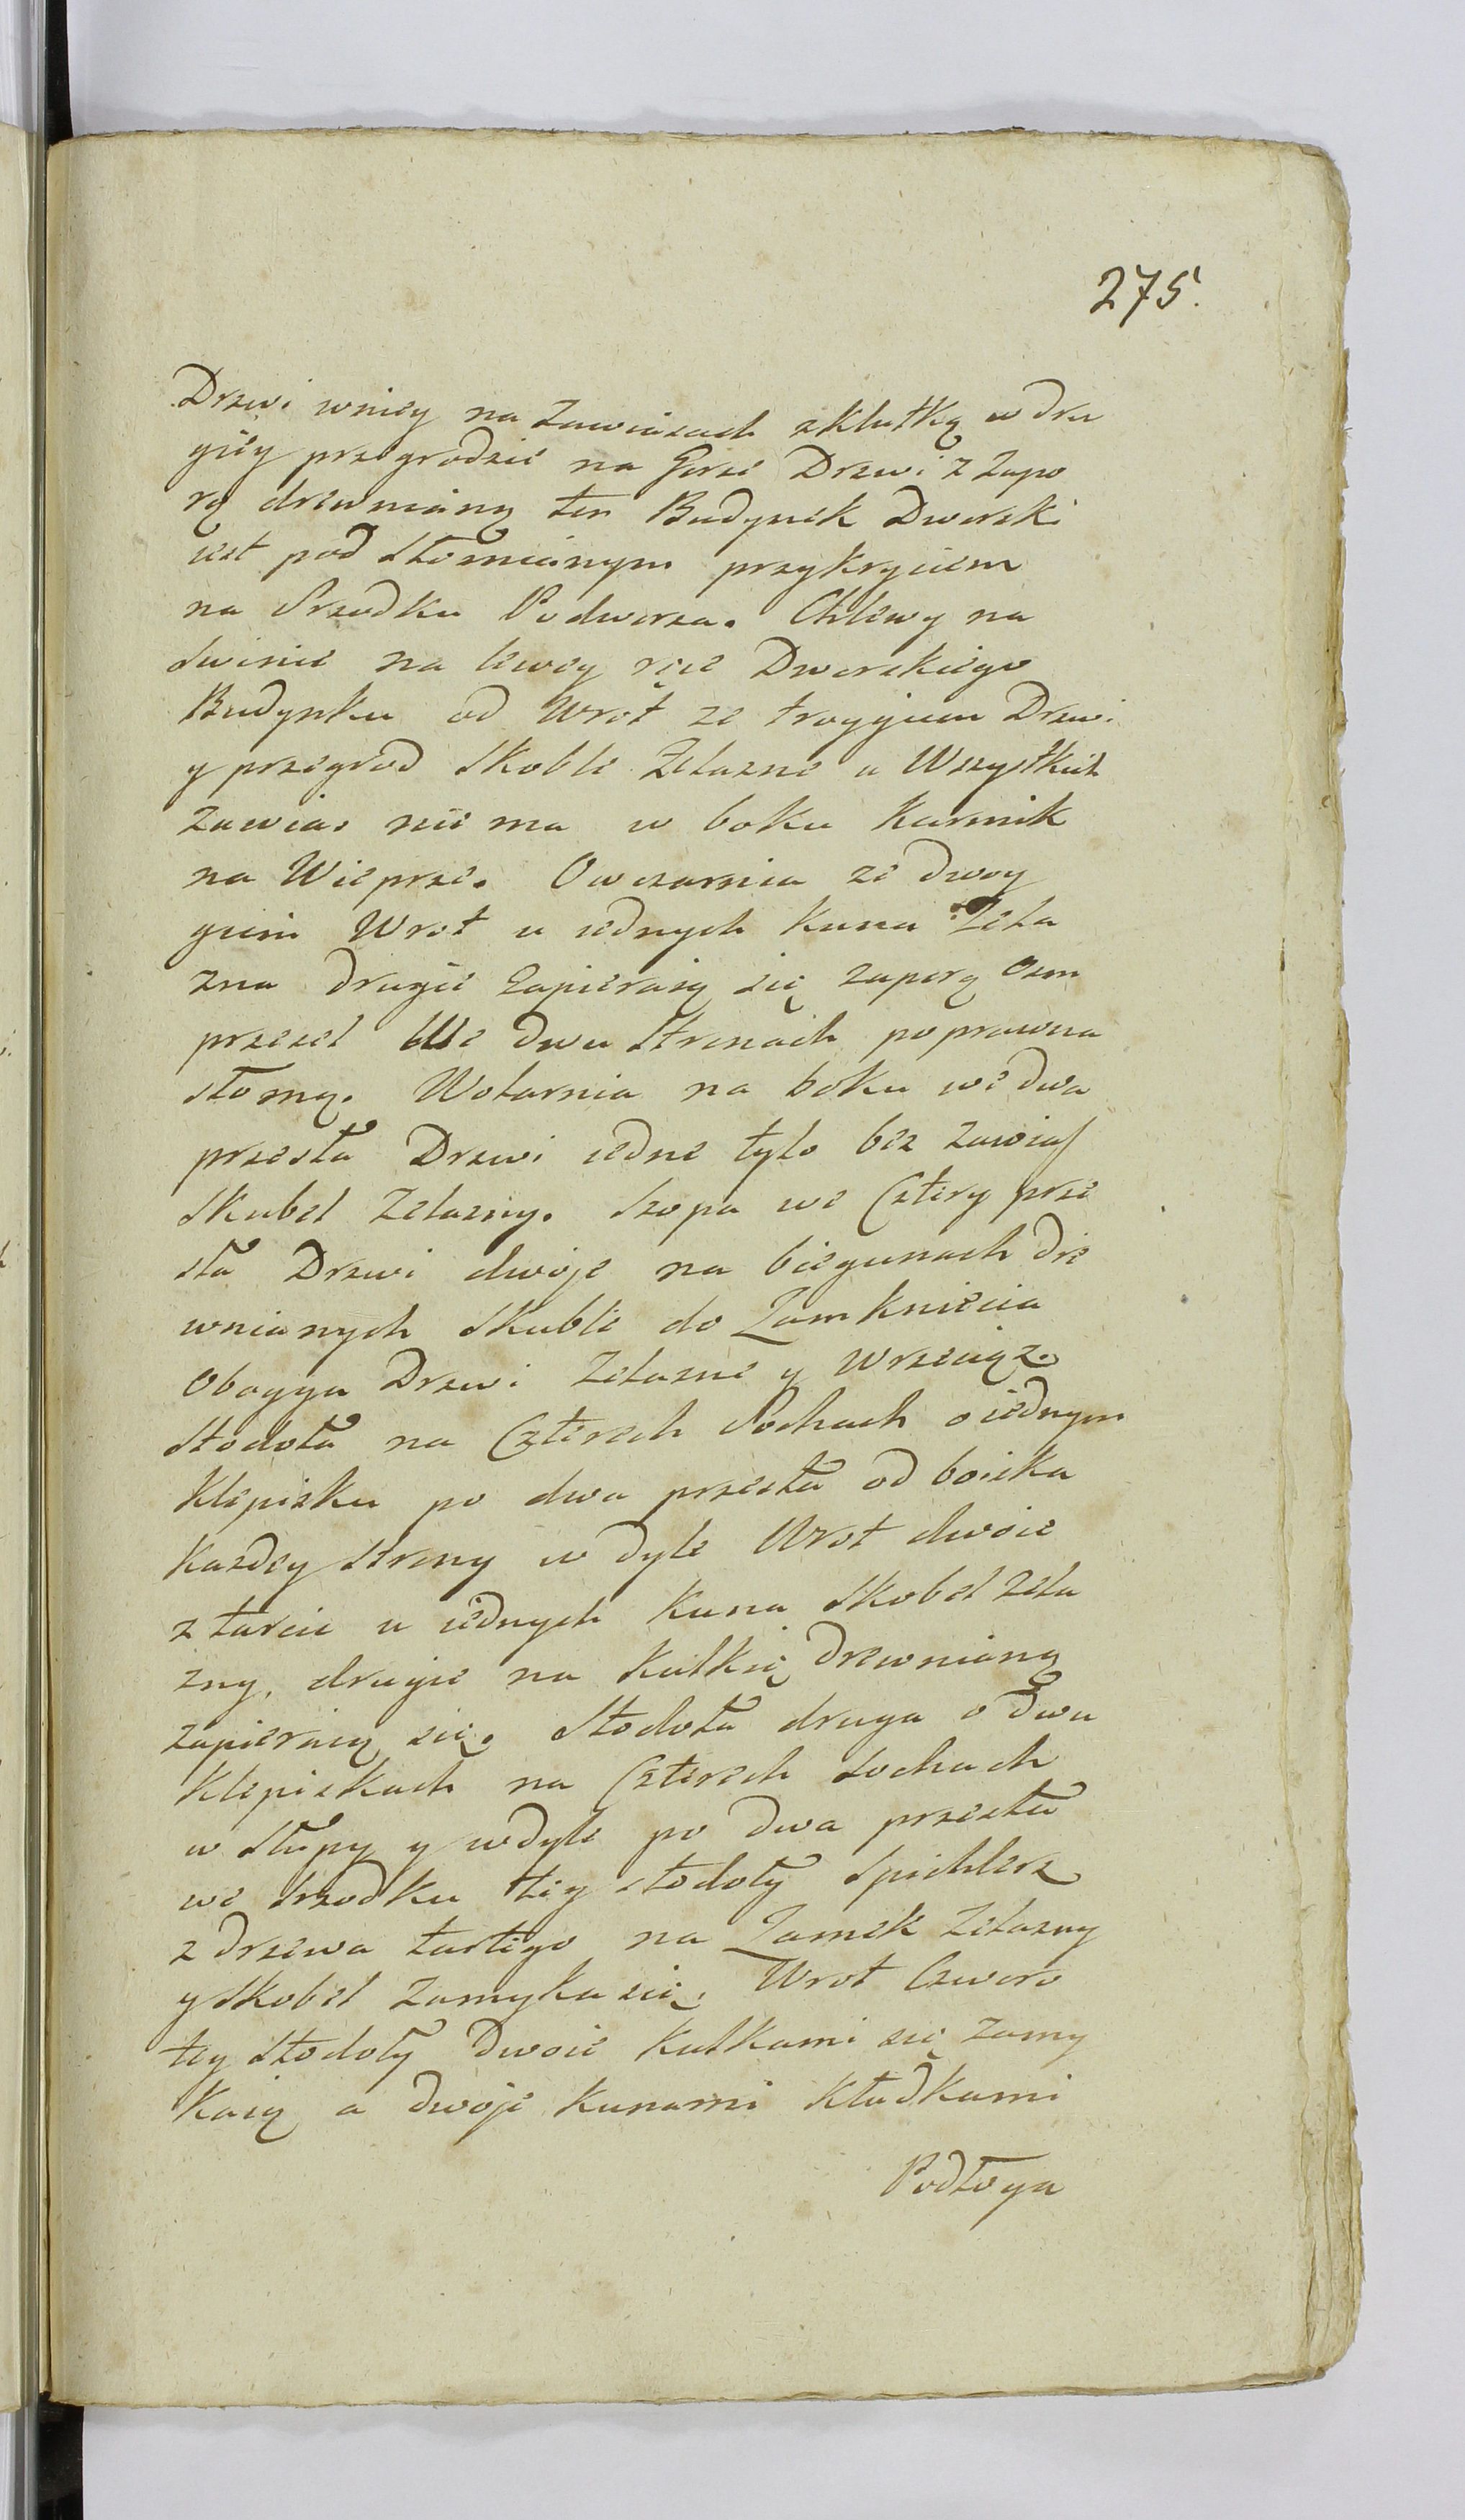 275.
Drzwi wniey na Zawiasach zklutką w dru
giey przegrodzie na Gorze Drzwi z Zapo
rą drewnianą ten Budynek Dworski
iest pod Słomianym przykryciem
na Srzodku Podworza. Chlewy na
Swinie na lewey ręce Dworskiego
Budynku od Wrot ze troygiem Drzwi
y przegrod Skoble Zelazne u Wszystkich
zawias nie ma w boku Karmik
na Wieprze. Owczarnia ze dwoy
giem Wrot u iednych Kuna Zela
zna drugie zapieraią się zaporą Osm
przeseł We dwu Stronach poprawna
słomą. Wołarnia na boku we dwa
przesła Drzwi iedne tylo bez zawias
Skubel Zelazny. Szopa we Cztery prze
sła Drzwi dwoje na biegunach dre
wnianych Skuble do Zamkniecia
Oboyga Drzwi Zelazne y Wrzeciąz.
Stodoła na Czterech Sochach o iednym
Klepisku po dwa przesła od boiska
Kazdey Strony w dyle Wrot dwoie
z tarcic u iednych Kuna Skobel Zela
zny, drugie na Kulkię drewnianą
zapieraią się. Stodoła druga o dwu
Klepiskach na Czterech Sochach
w Słupy y wdyle po dwa przesła
we srzodku tey stodoły Spichlerz
z drzewa tartego na Zamek Zelazny
y Skobel zamyka się. Wrot Czworo
tey Stodoły Dwoie Kulkami się zamy
Kaią a dwoje Kunami Kładkami
Podłoga